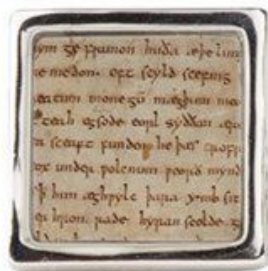 ym ge frunon huða æþelin
me don. oft scyld scefing
eatum monegū mægþum
teah egsode eorl syððan
sceaft funden he þæs frofr
x under ƿolcnum ƿeorð mynd
þ him æghƿylc þara ymb sit
er hron rade hyran scolde